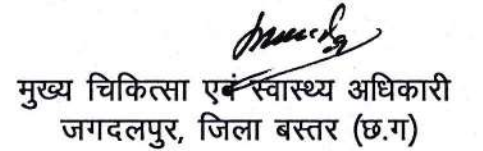 मुख्य चिकित्सा एवं स्वास्थ्य अधिकारी
जगदलपुर, जिला बस्तर (छ.ग)